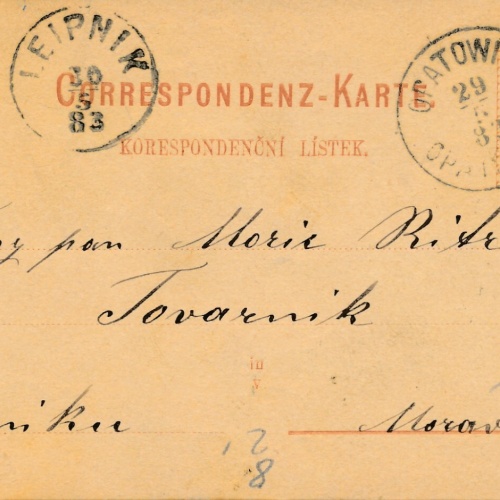 LEIPNIK
30
5
83
CORRESPONDENZ-KARTE.
KORESPONDENČNÍ LÍSTEK.
OPATOW
29
8
OPAT
pan Moric Ritr
Tovarnik
in
v
niku Morav
2,
8